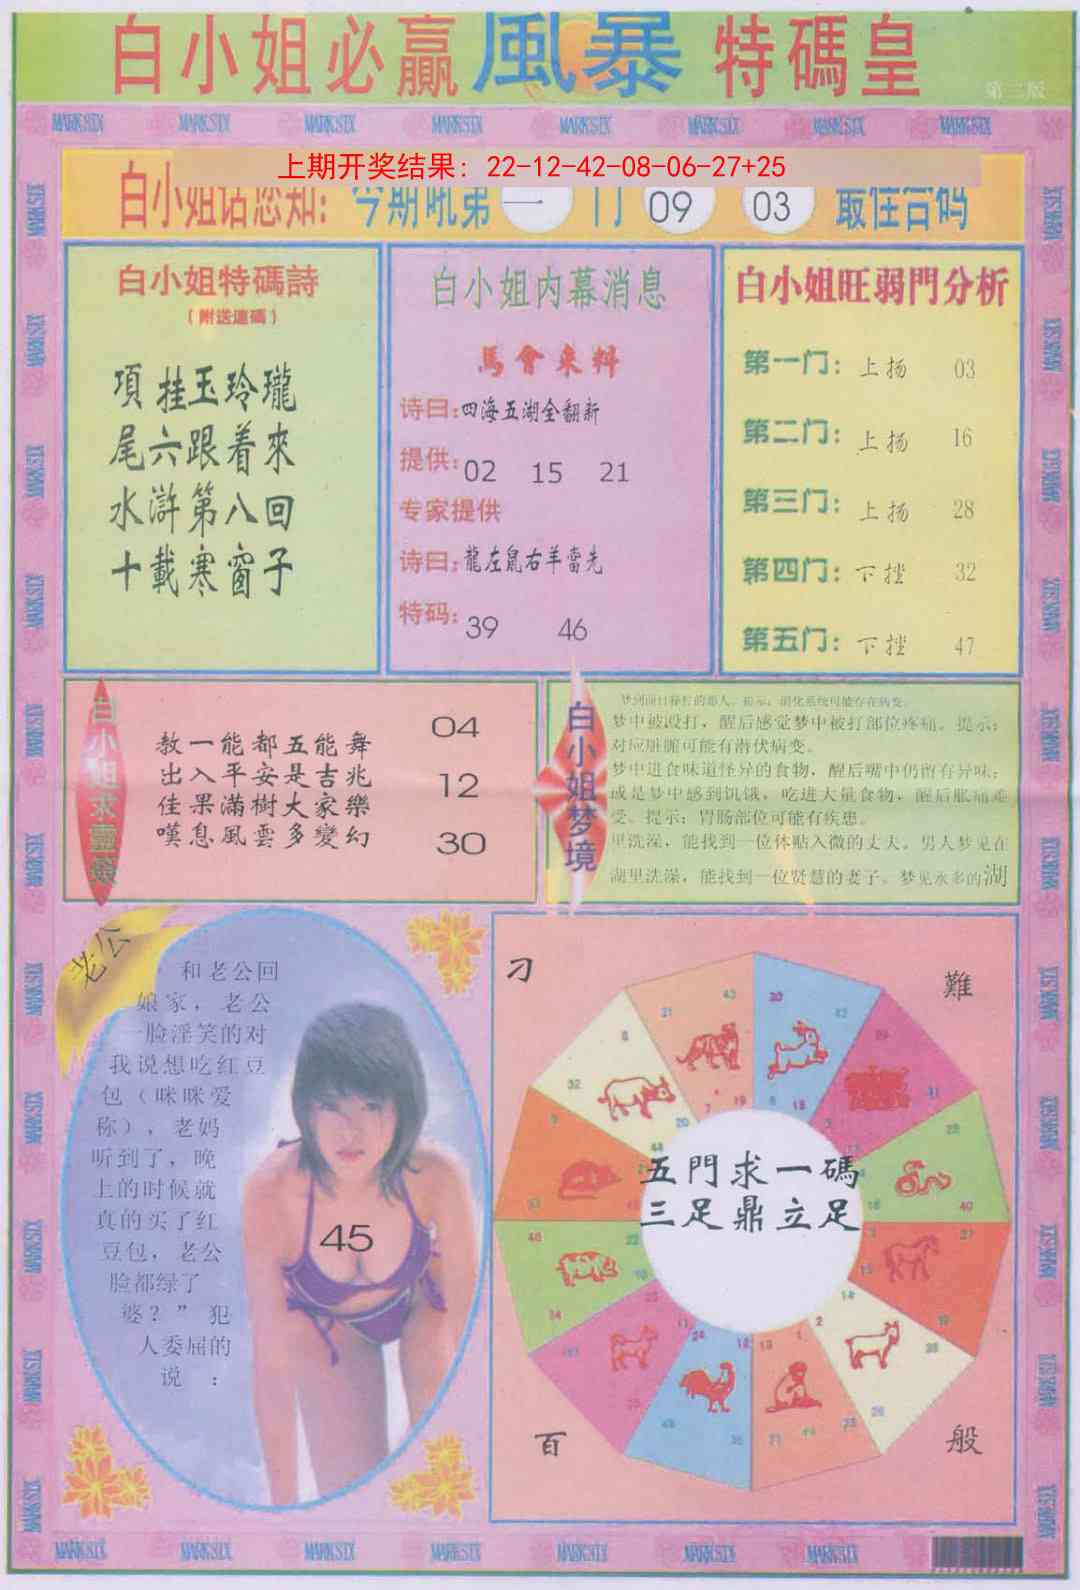 白小姐必贏風暴特碼皇
第三版
MARK SIX MARK SIX MARK SIX MARK SIX MARK SIX MARK SIX MARK SIX MARK SIX
上期开奖结果：22-12-42-08-06-27+25
白小姐话您知：今期吼第一门 09 03 最佳合码
白小姐特碼詩
（附送連碼）
項挂玉玲瓏
尾六跟着來
水滸第八回
十載寒窗子
白小姐内幕消息
馬會來料
诗曰：四海五湖全翻新
提供：02 15 21
专家提供
诗曰：龍左鼠右羊當先
特码：39 46
白小姐旺弱門分析
第一门：上扬 03
第二门：上扬 16
第三门：上扬 28
第四门：下挫 32
第五门：下挫 47
白小姐求靈簽
教一能都五能舞
出入平安是吉兆
佳果滿樹大家樂
嘆息風雲多變幻
04
12
30
白小姐梦境
梦中被殴打，醒后感觉梦中被打部位疼痛。提示：
对应脏腑可能有潜伏病变。
梦中进食味道怪异的食物，醒后嘴中仍留有异味；
或是梦中感到饥饿，吃进大量食物，醒后胀痛难
受。提示：胃肠部位可能有疾患。
里洗澡，能找到一位体贴入微的丈夫。男人梦见在
湖里洗澡，能找到一位贤慧的妻子。梦见水多的湖
老公
和老公回
娘家，老公
一脸淫笑的对
我说想吃红豆
包（咪咪爱
称），老妈
听到了，晚
上的时候就
真的买了红
豆包，老公
脸都绿了
婆？”犯
人委屈的
说：
45
刁
難
五門求一碼
三足鼎立足
百
般
MARK SIX MARK SIX MARK SIX MARK SIX MARK SIX MARK SIX MARK SIX